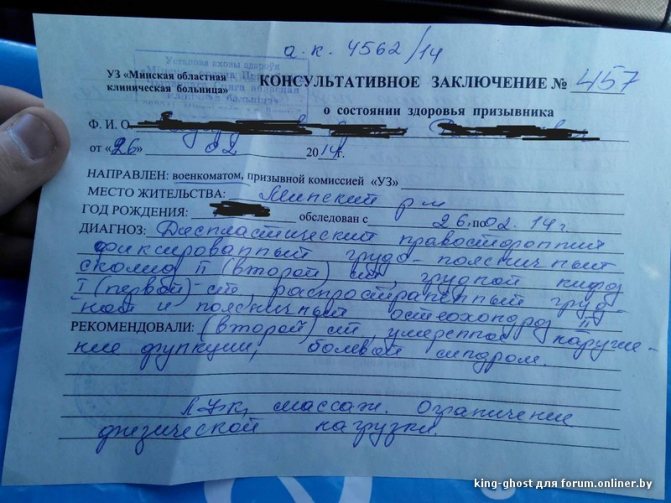 а.к. 4562/14
УЗ «Минская областная
клиническая больница»
КОНСУЛЬТАТИВНОЕ ЗАКЛЮЧЕНИЕ № 457
о состоянии здоровья призывника
Ф. И. О
от «26» 02 2014г.
НАПРАВЛЕН: военкоматом, призывной комиссией «УЗ»
МЕСТО ЖИТЕЛЬСТВА: Минский р-н
ГОД РОЖДЕНИЯ: обследован с 26. по 02. 14г.
ДИАГНОЗ: Диспластический правосторонний
фиксированный грудо-поясничный
сколиоз II (второй) ст, грудной кифоз
I (первой) ст, распространенный груд-
ной и поясничный остеохондроз II
РЕКОМЕНДОВАЛИ: (второй) ст, умеренное наруше-
ние функции, болевой синдром.
ЛФК, массаж. Ограничение
физической нагрузки.
king-ghost для forum.onliner.by